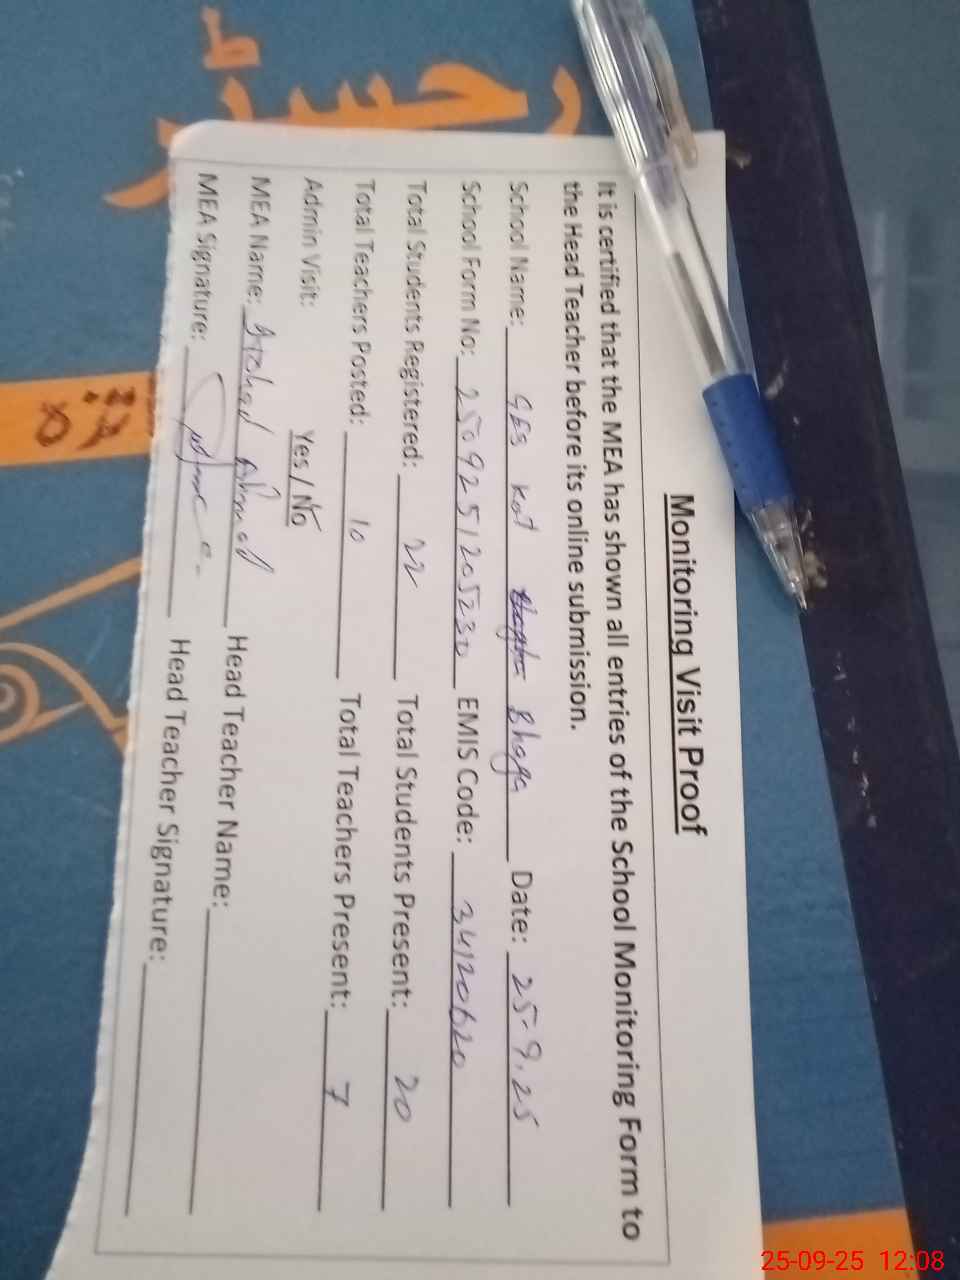 رجسٹر
Monitoring Visit Proof
It is certified that the MEA has shown all entries of the School Monitoring Form to
the Head Teacher before its online submission.
School Name: GES Kot Bhaga Date: 25-9.25
School Form No: 2509251205230 EMIS Code: 34120620
Total Students Registered: 22 Total Students Present: 20
Total Teachers Posted: 10 Total Teachers Present: 7
Admin Visit: Yes / No
MEA Name: Arshad Ahmad Head Teacher Name:
MEA Signature: Head Teacher Signature:
25-09-25 12:08